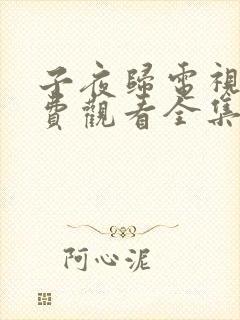 子夜歸電視
費觀看全集
阿心泥